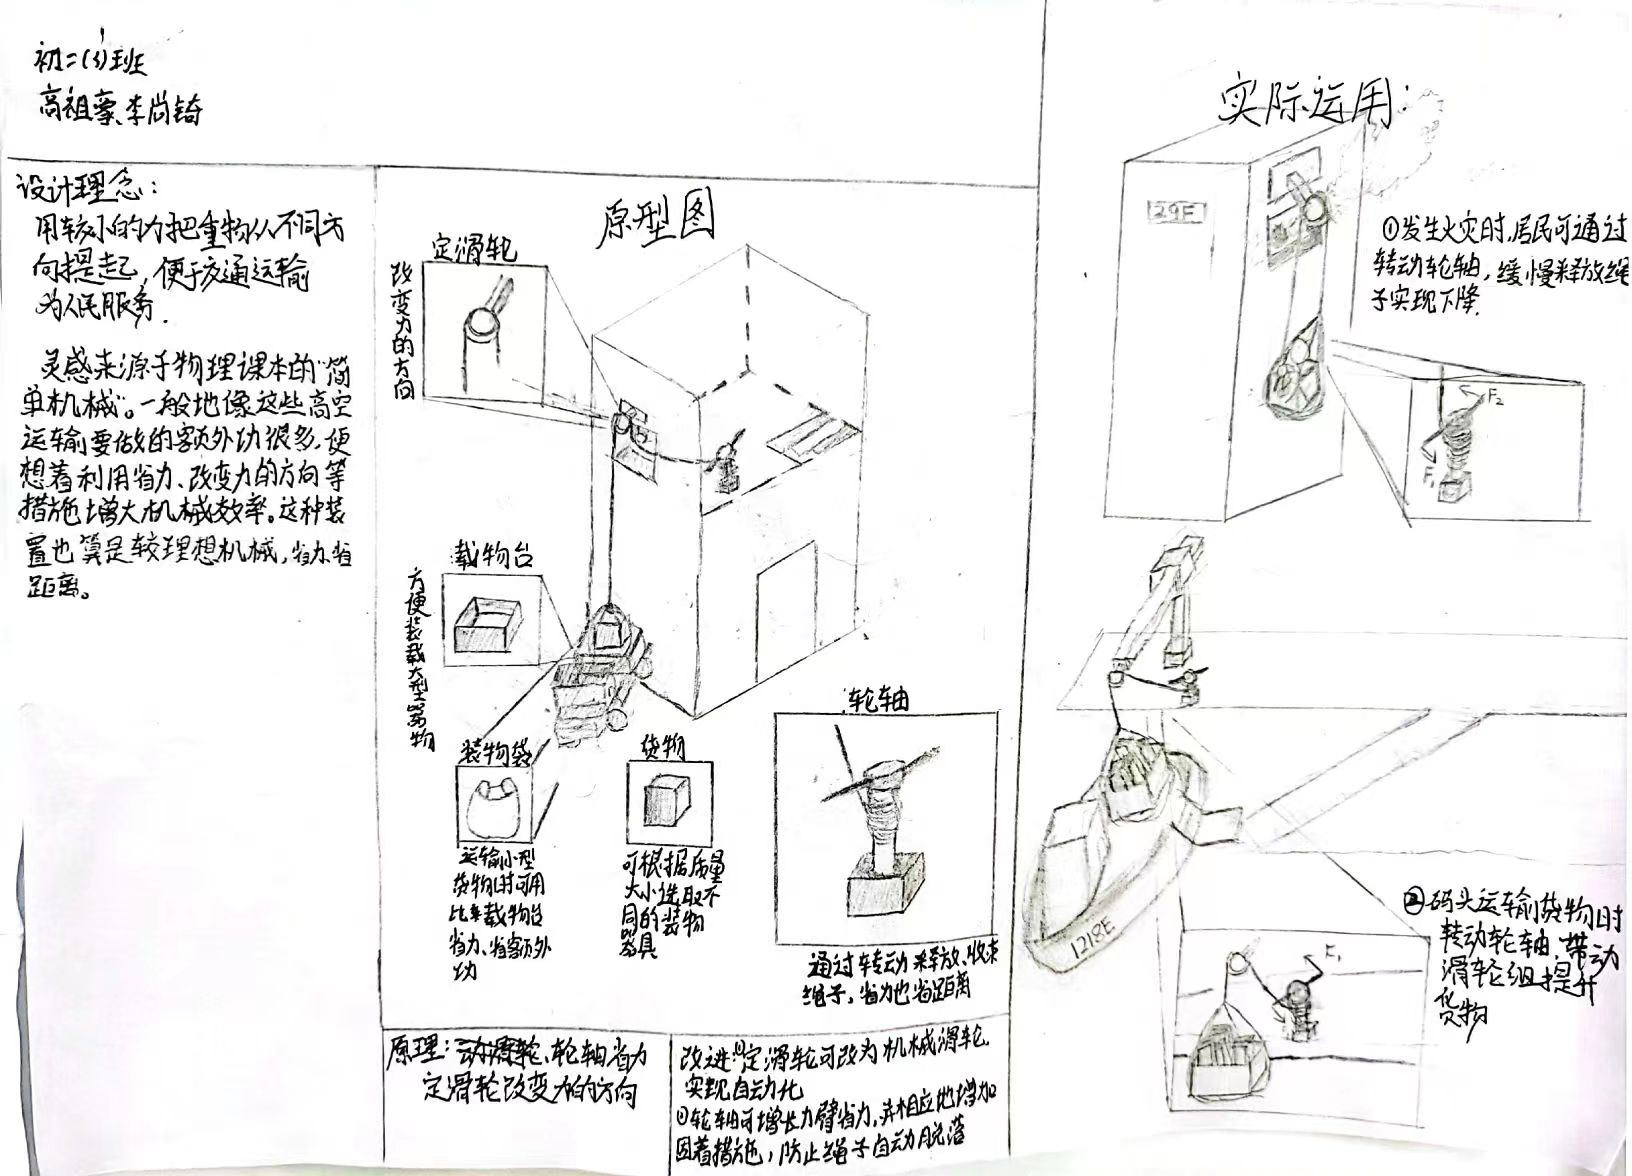 初二(3)班
高祖豪、李尚锜
设计理念：
用较小的力把重物从不同方
向提起，便于交通运输
为人民服务.
灵感来源于物理课本的“简
单机械”。一般地像这些高空
运输要做的额外功很多，便
想着利用省力、改变力的方向等
措施增大机械效率。这种装
置也算是较理想机械，省力、省
距离。
原型图
定滑轮
改变力的方向
载物台
方便装载大型器物
装物袋
运输小型
货物时可用
比车载物台
省力、省额外
功
货物
可根据质量
大小选取不
同的装物
器具
轮轴
通过转动释放、收束
绳子，省力也省距离
原理：动滑轮、轮轴省力
定滑轮改变力的方向
改进:①定滑轮可改为机械滑轮.
实现自动化
②轮轴可增长力臂省力，并相应地增加
固着措施，防止绳子自动脱落
实际运用：
29F
①发生火灾时，居民可通过
转动轮轴，缓慢释放绳
子实现下降.
F₂
F₁
1218E
②码头运输货物时
转动轮轴，带动
滑轮组提升
货物
F₁